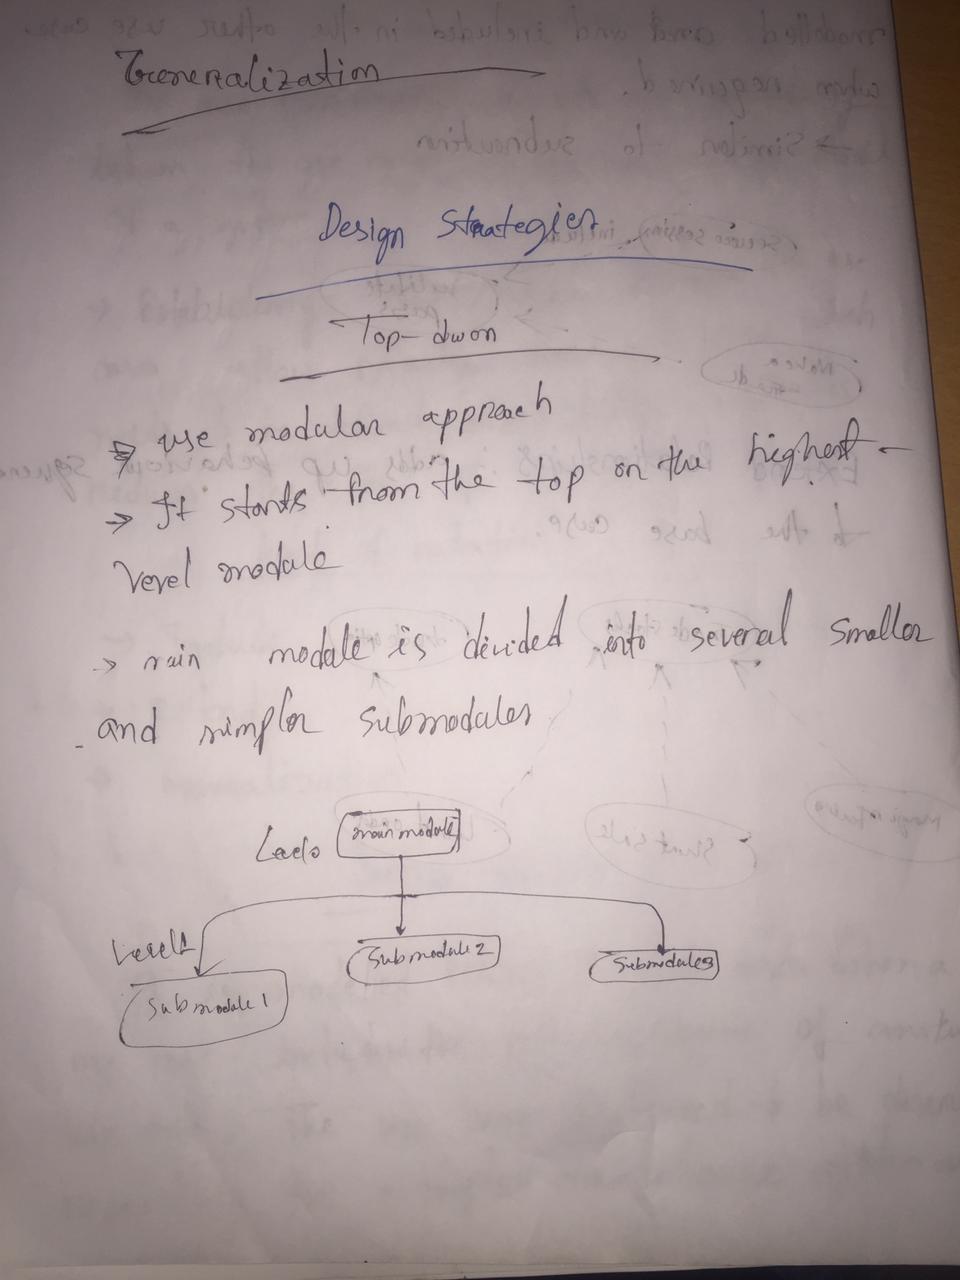 Generalization
Design Strategies
Top-dwon
→ use modular approach
→ It starts from the top or the highest-
level module
→ main module is divided into several smaller
and simpler submodules
main module
Submodule 1
Submodule 2
Submodule3